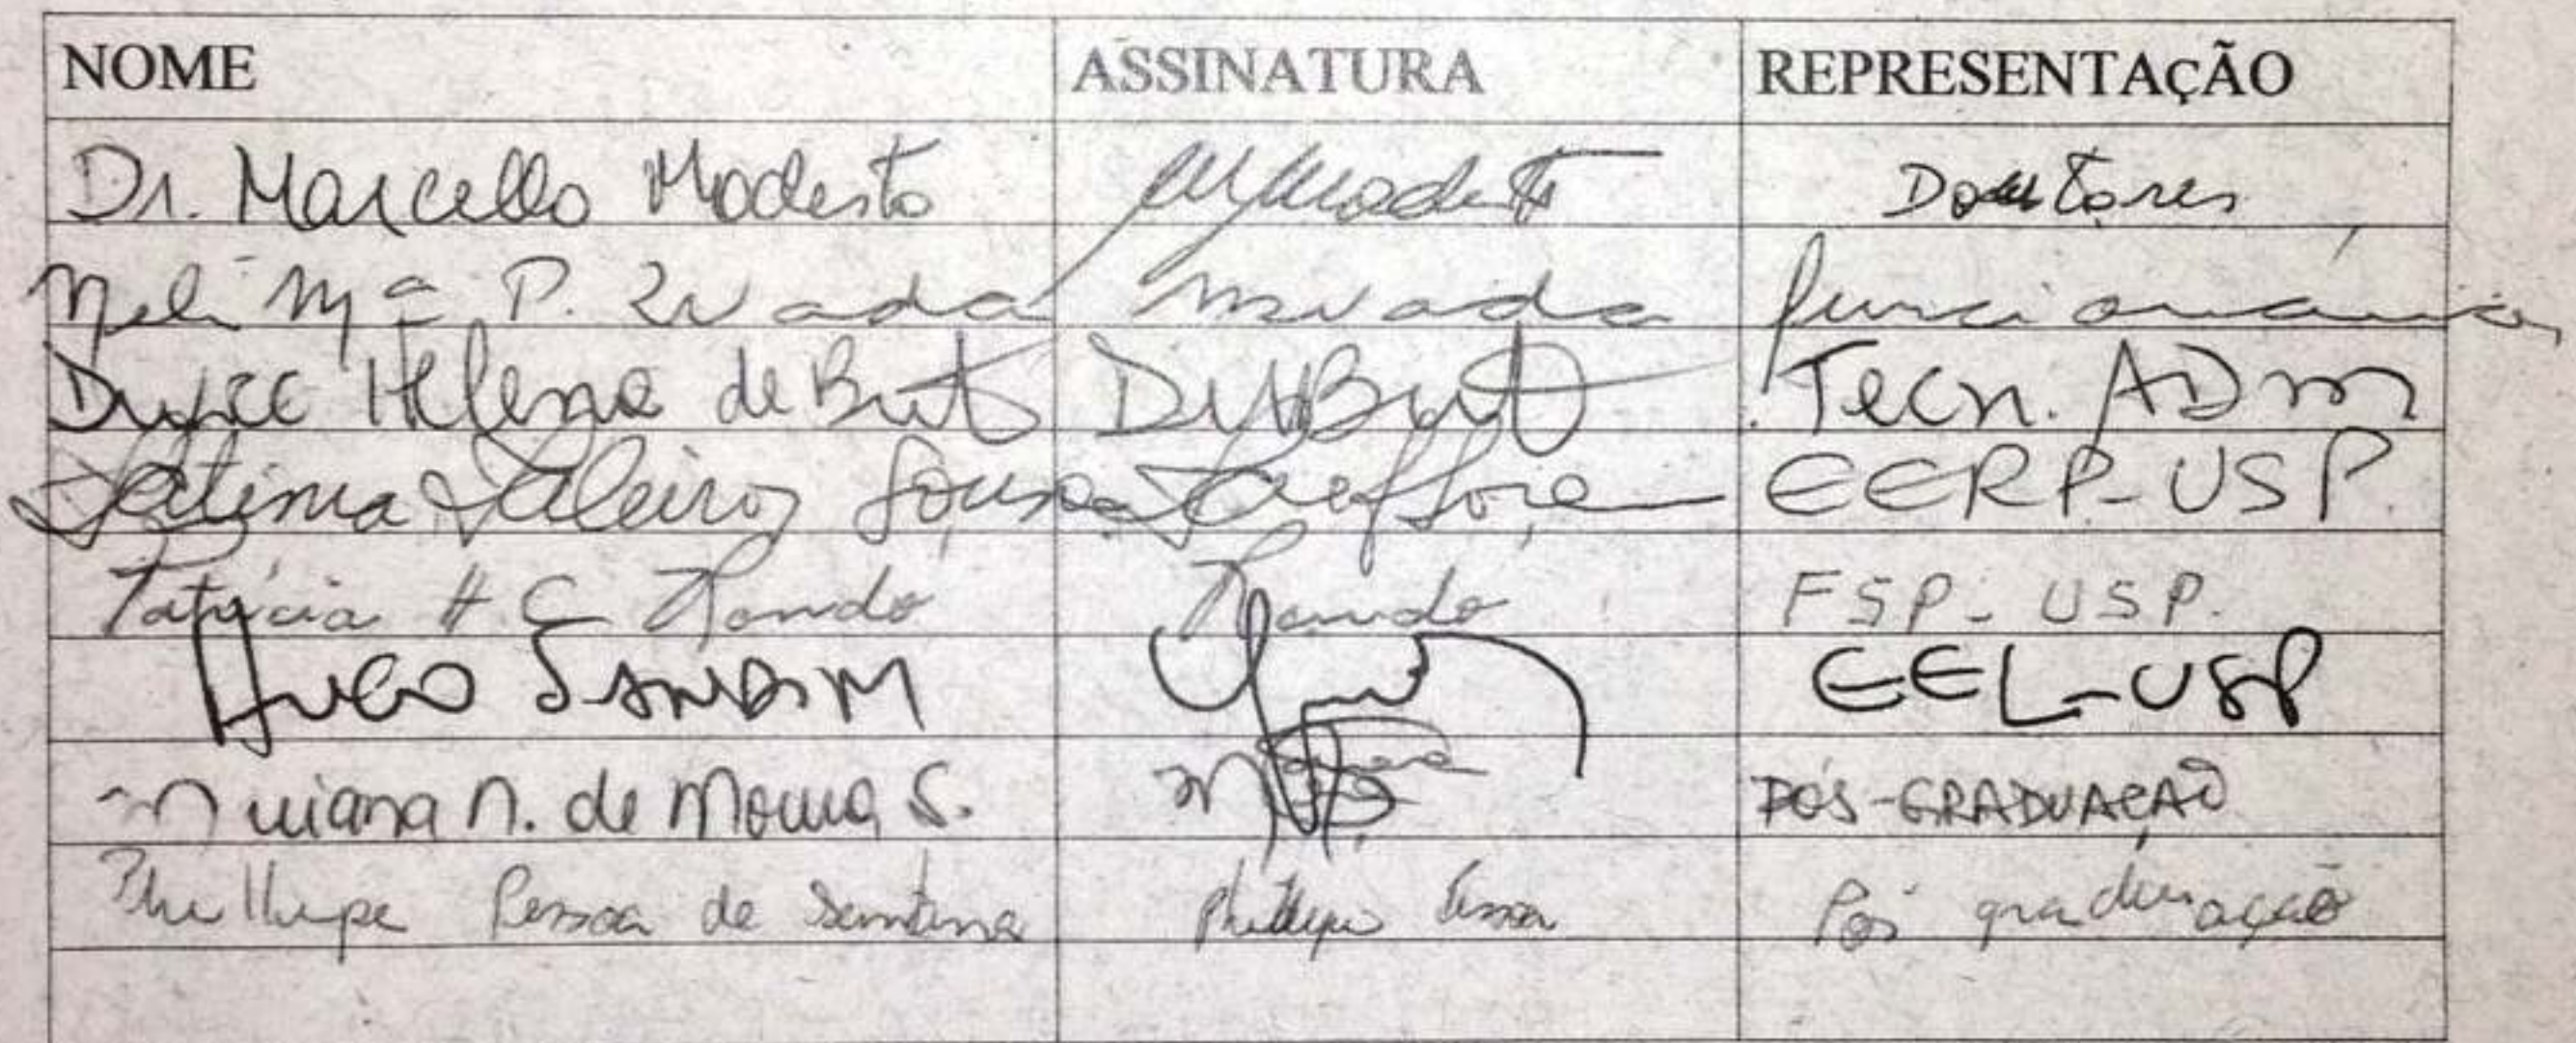 NOME ASSINATURA REPRESENTAÇÃO
Dr. Marcello Modesto Doutores
Neli Mª P. Wada funcionários
Dulce Helena de Brit Tecn. ADM
Fátima Faleiros Sousa EERP-USP
Patrícia H. C. Rondó Rondó FSP-USP.
HUGO SANDIM EEL-USP
n. de Moura S. PÓS-GRADUAÇÃO
Phillipe Pessoa de Santana Phillipe Pessoa Pós graduação